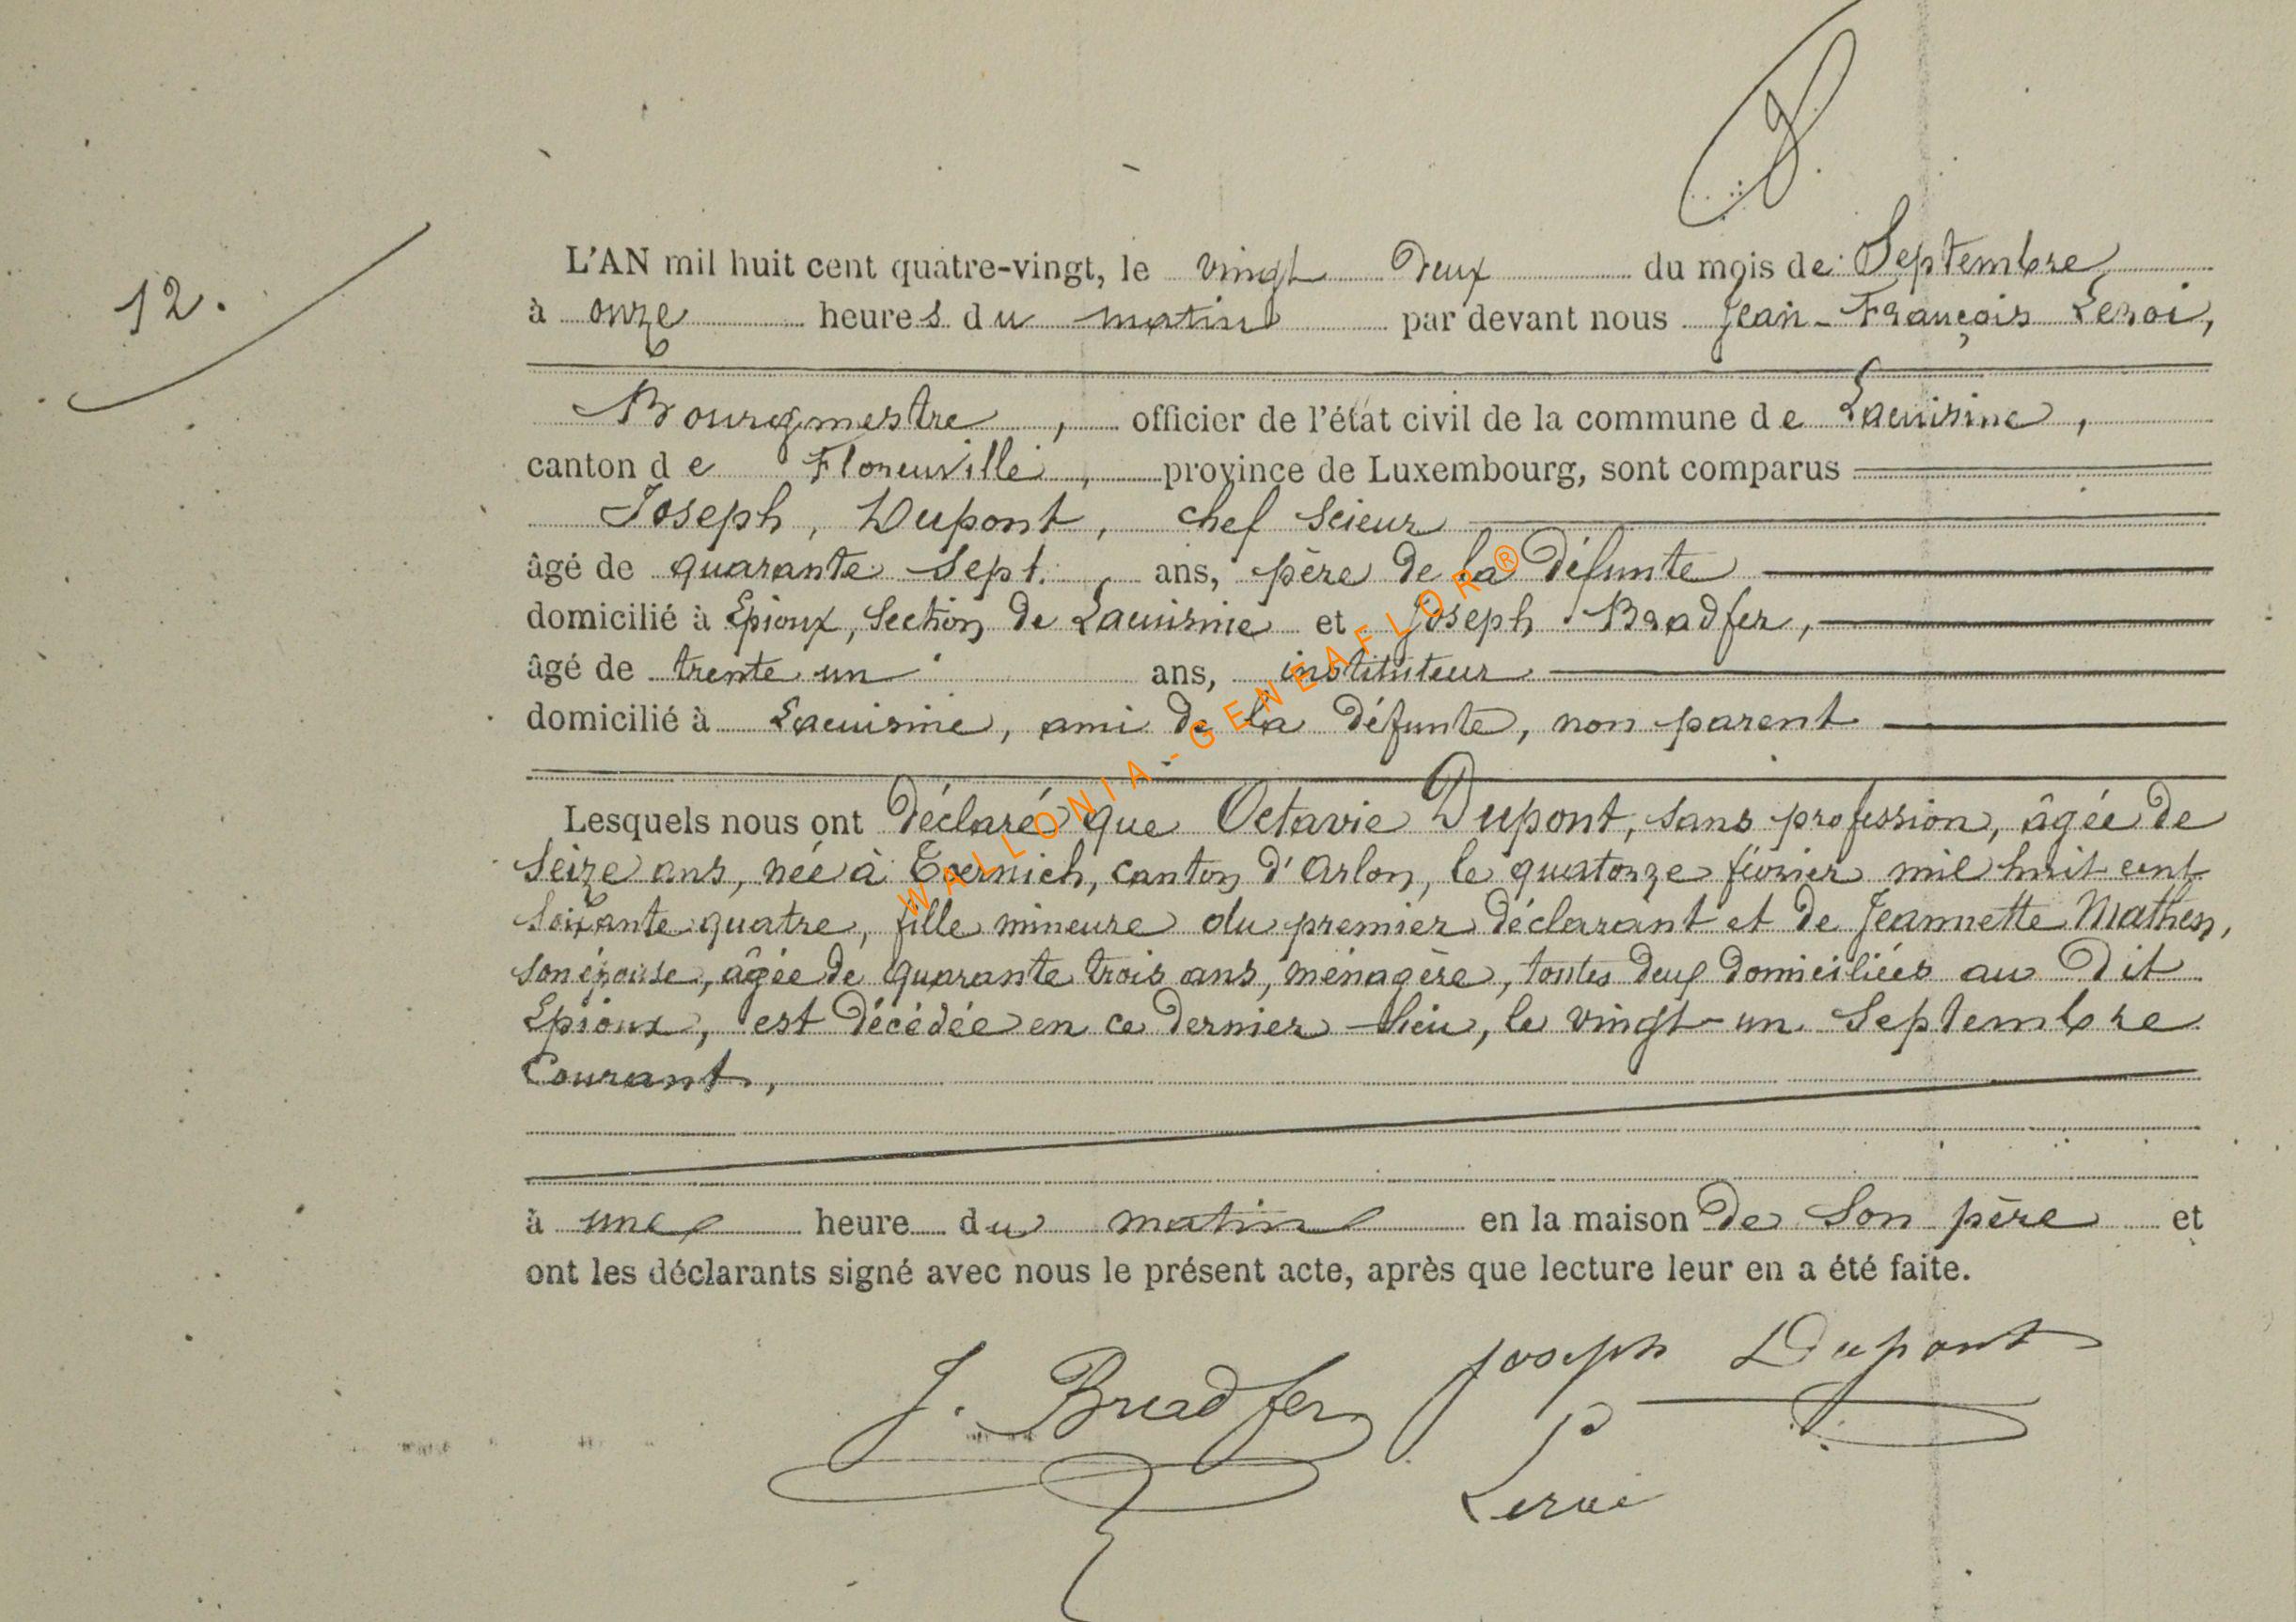 12.
L'AN mil huit cent quatre-vingt, le vingt deux du mois de Septembre,
à onze heures du matin par devant nous Jean-François Leroi,
Bourgmestre, officier de l'état civil de la commune de Lacuisine,
canton de Florenville, province de Luxembourg, sont comparus
Joseph, Dupont, chef scieur
âgé de quarante sept. ans, père de la défunte
domicilié à Epioux, section de Lacuisine et Joseph Bradfer,
âgé de trente un ans, instituteur
domicilié à Lacuisine, ami de la défunte, non parent
Lesquels nous ont déclaré que Octavie Dupont, sans profession, âgée de
seize ans, née à Toernich, canton d'Arlon, le quatorze février mil huit cent
soixante quatre, fille mineure du premier déclarant et de Jeannette Mathen,
son épouse, âgée de quarante trois ans, ménagère, toutes deux domiciliées au dit
Epioux, est décédée en ce dernier lieu, le vingt-un Septembre
Courant,
à une heure du matin en la maison de son père et
ont les déclarants signé avec nous le présent acte, après que lecture leur en a été faite.
Joseph Dupont
J. Bradfer
Leroi
WALLONIA-GENEAFLOR®